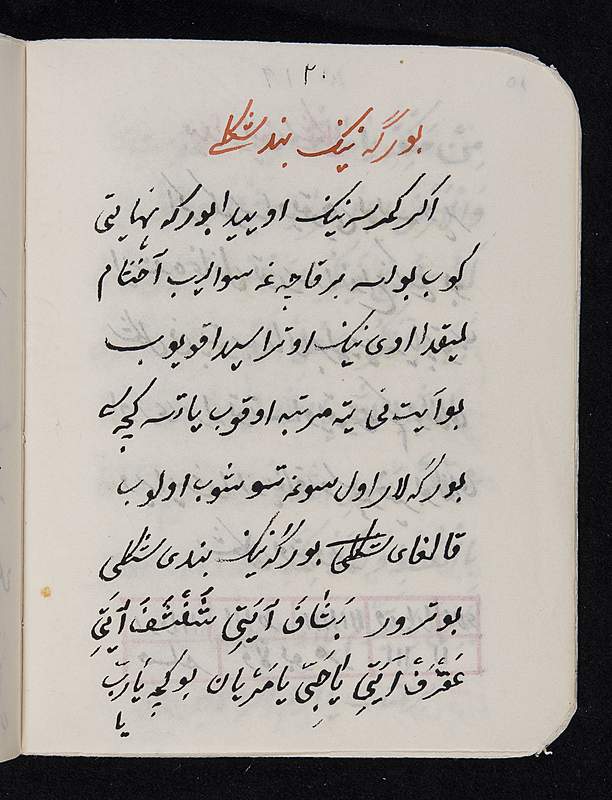 ٢٠
بورگه نینک بند شکلی
اکر کمرسه نینک اوییدا بورکه نهایتی
کوب بولسه بر قاچه غه سو الیب آخشام
لیقدا اوی نینک اوتراسیدا قویوب
بو آیت نی یته مرتبه اوقوب یاتسه کچه سی
بورگه لار اول سوغه توشوب اولوب
قالغای بورگه نینک بندی شکلی
بو ترور آیَتِی آیَتِی
آیَتِی یا یا بو کچه یارب
یا